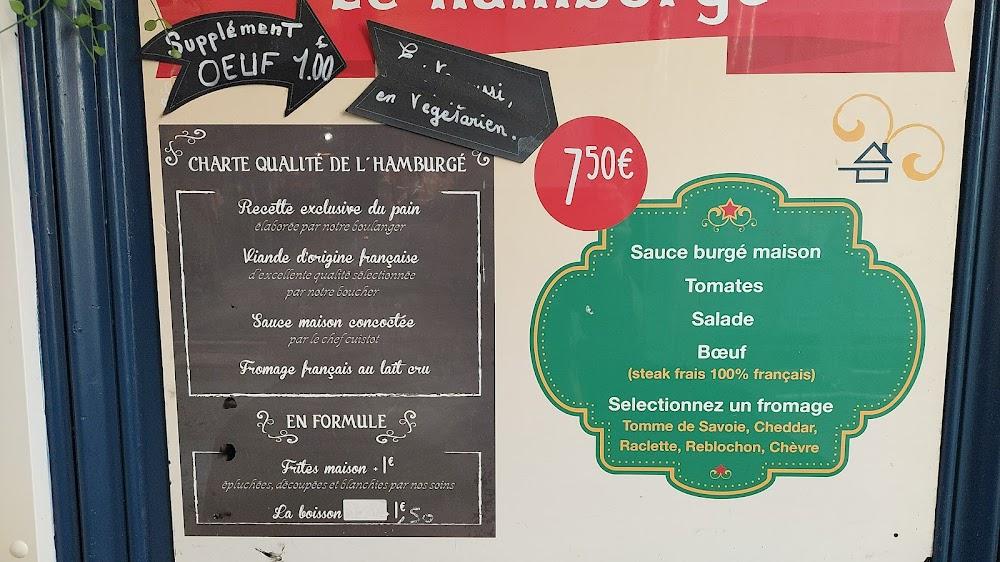 Le Hamburgé
Supplément
OEUF 1.00
en végétarien.
7,50€
CHARTE QUALITÉ DE L'HAMBURGÉ
Recette exclusive du pain
élaborée par notre boulanger
Viande d'origine française
d'excellente qualité sélectionnée
par notre boucher
Sauce maison concoctée
par le chef cuistot
Fromage français au lait cru
EN FORMULE
Frites maison + 1€
épluchées, découpées et blanchies par nos soins
La boisson 1€,50
Sauce burgé maison
Tomates
Salade
Bœuf
(steak frais 100% français)
Selectionnez un fromage
Tomme de Savoie, Cheddar,
Raclette, Reblochon, Chèvre